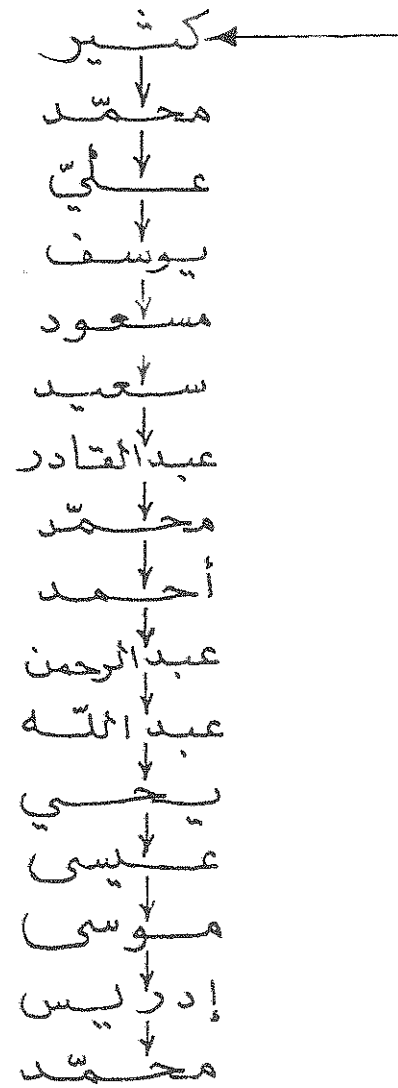 كثير
محمّد
عليّ
يوسف
مسعود
سعيد
عبدالقادر
محمّد
أحمد
عبدالرحمن
عبداللّه
يحي
عيسى
موسى
إدريس
محمّد